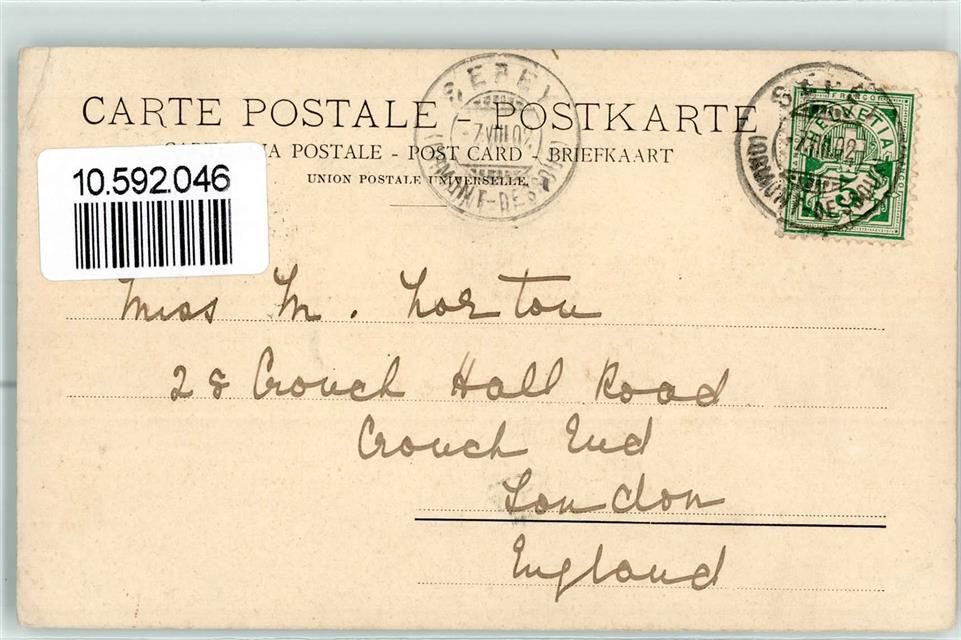 CARTE POSTALE - POSTKARTE
POSTALE - POST CARD - BRIEFKAART
UNION POSTALE UNIVERSELLE.
10.592.046
SEPEY
-7.VIII.02
HELVETIA
5
Miss M. Lorton
28 Crouch Hall Road
Crouch End
London
England